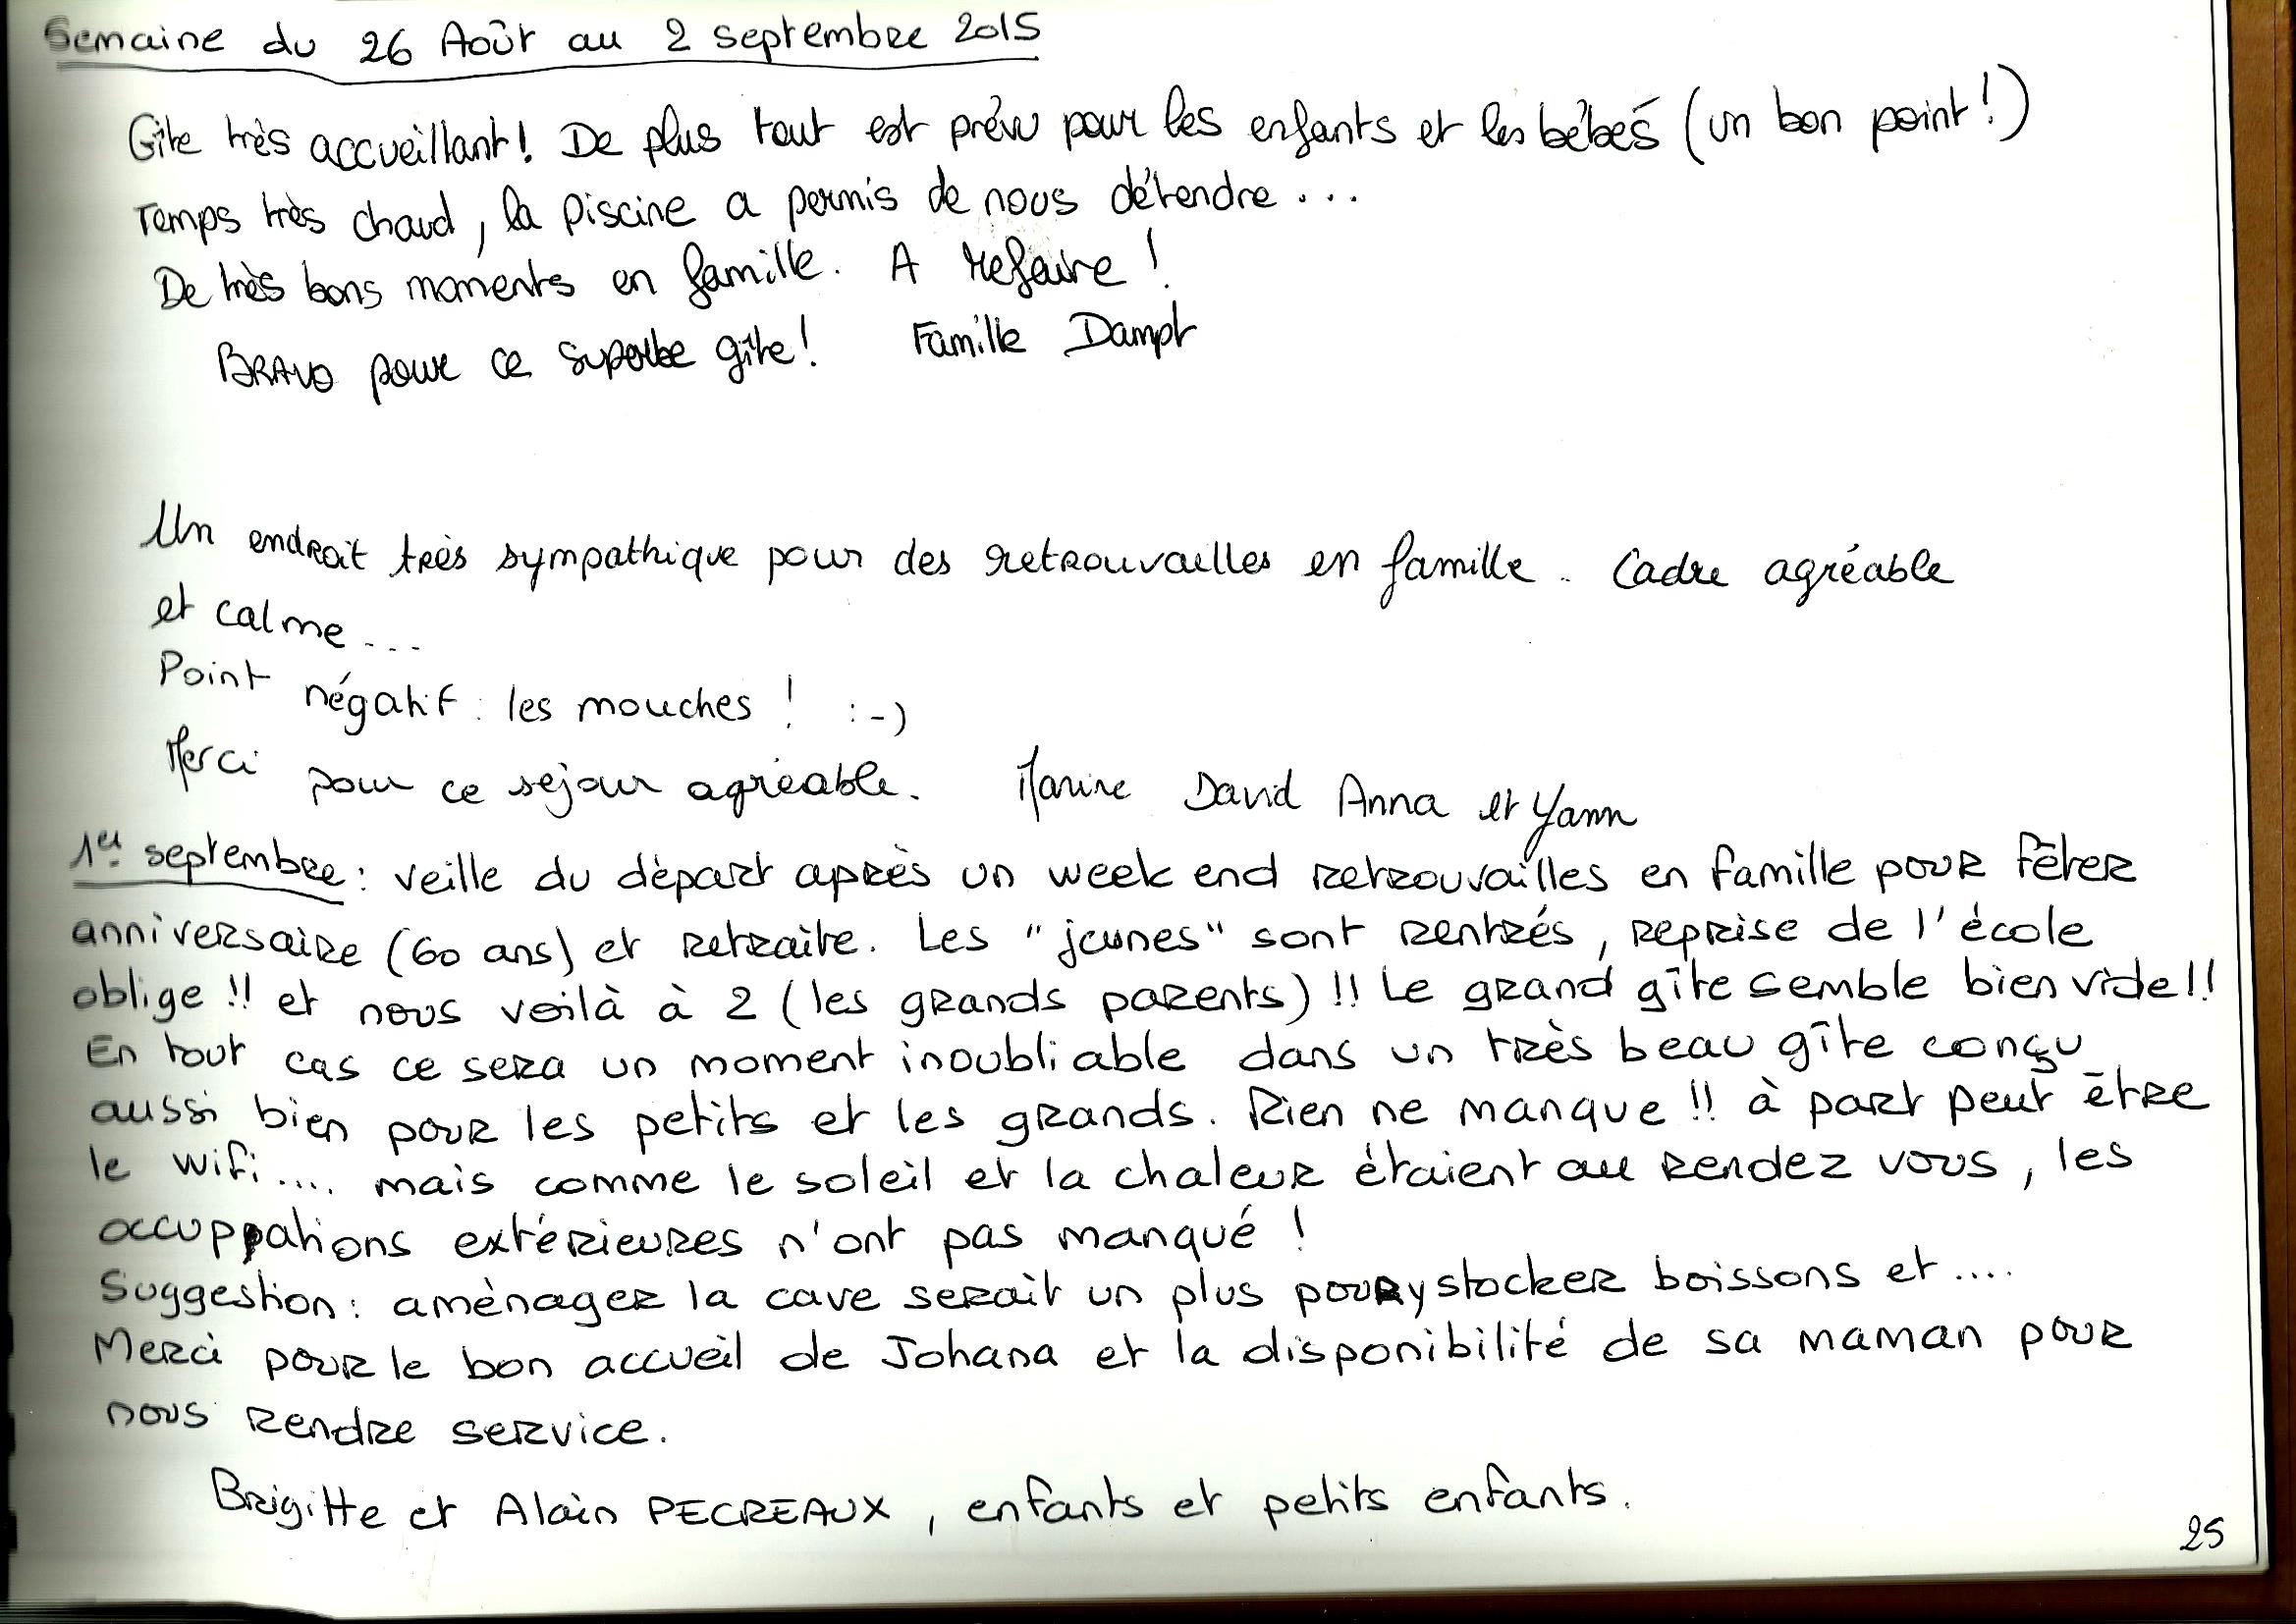 Semaine du 26 Août au 2 septembre 2015
Gîte très accueillant! De plus tout est prévu pour les enfants et les bébés (un bon point!)
Temps très chaud, la piscine a permis de nous détendre...
De très bons moments en famille. A refaire!
BRAVO pour ce superbe gîte! Famille Dampt
Un endroit très sympathique pour des retrouvailles en famille. Cadre agréable
et calme...
Point négatif : les mouches ! :-)
Merci pour ce séjour agréable. Marine David Anna et Yann
1er septembre : veille du départ après un week end retrouvailles en famille pour fêter
anniversaire (60 ans) et retraite. Les "jeunes" sont rentrés, reprise de l'école
oblige !! et nous voilà à 2 (les grands parents) !! Le grand gîte semble bien vide!!
En tout cas ce sera un moment inoubliable dans un très beau gîte conçu
aussi bien pour les petits et les grands. Rien ne manque !! à part peut être
le wifi.... mais comme le soleil et la chaleur étaient au rendez vous, les
occuppations extérieures n'ont pas manqué !
Suggestion : aménager la cave serait un plus pour y stocker boissons et ....
Merci pour le bon accueil de Johana et la disponibilité de sa maman pour
nous rendre service.
Brigitte et Alain PECREAUX, enfants et petits enfants.
25